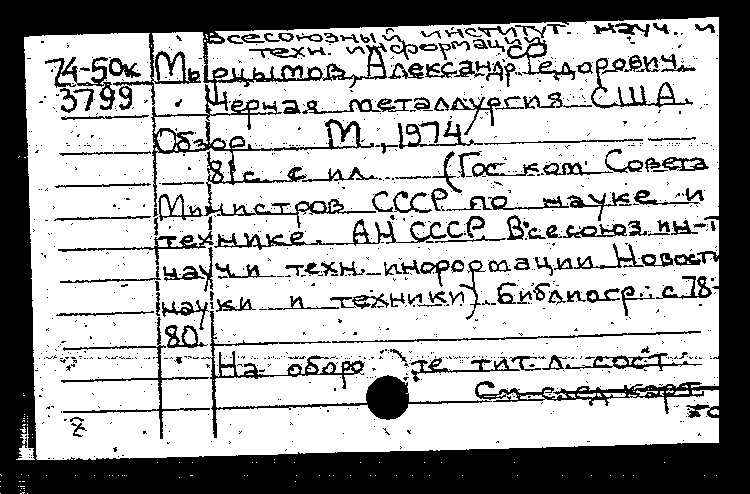 Всесоюзный институт. науч. и
техн. информац
74-50к Мырцымов, Александр Федорович.
3799 Черная металлургия США.
Обзор. М., 1974.
81с. с ил. (Гос ком. Совета
Министров СССР по науке и
технике. АН СССР. Всесоюз. ин-т
науч и техн. инорормации. Новости
науки и техники). Библиогр.: с. 78-
80.
На оборо те тит. л. сост.:
См след карт
2